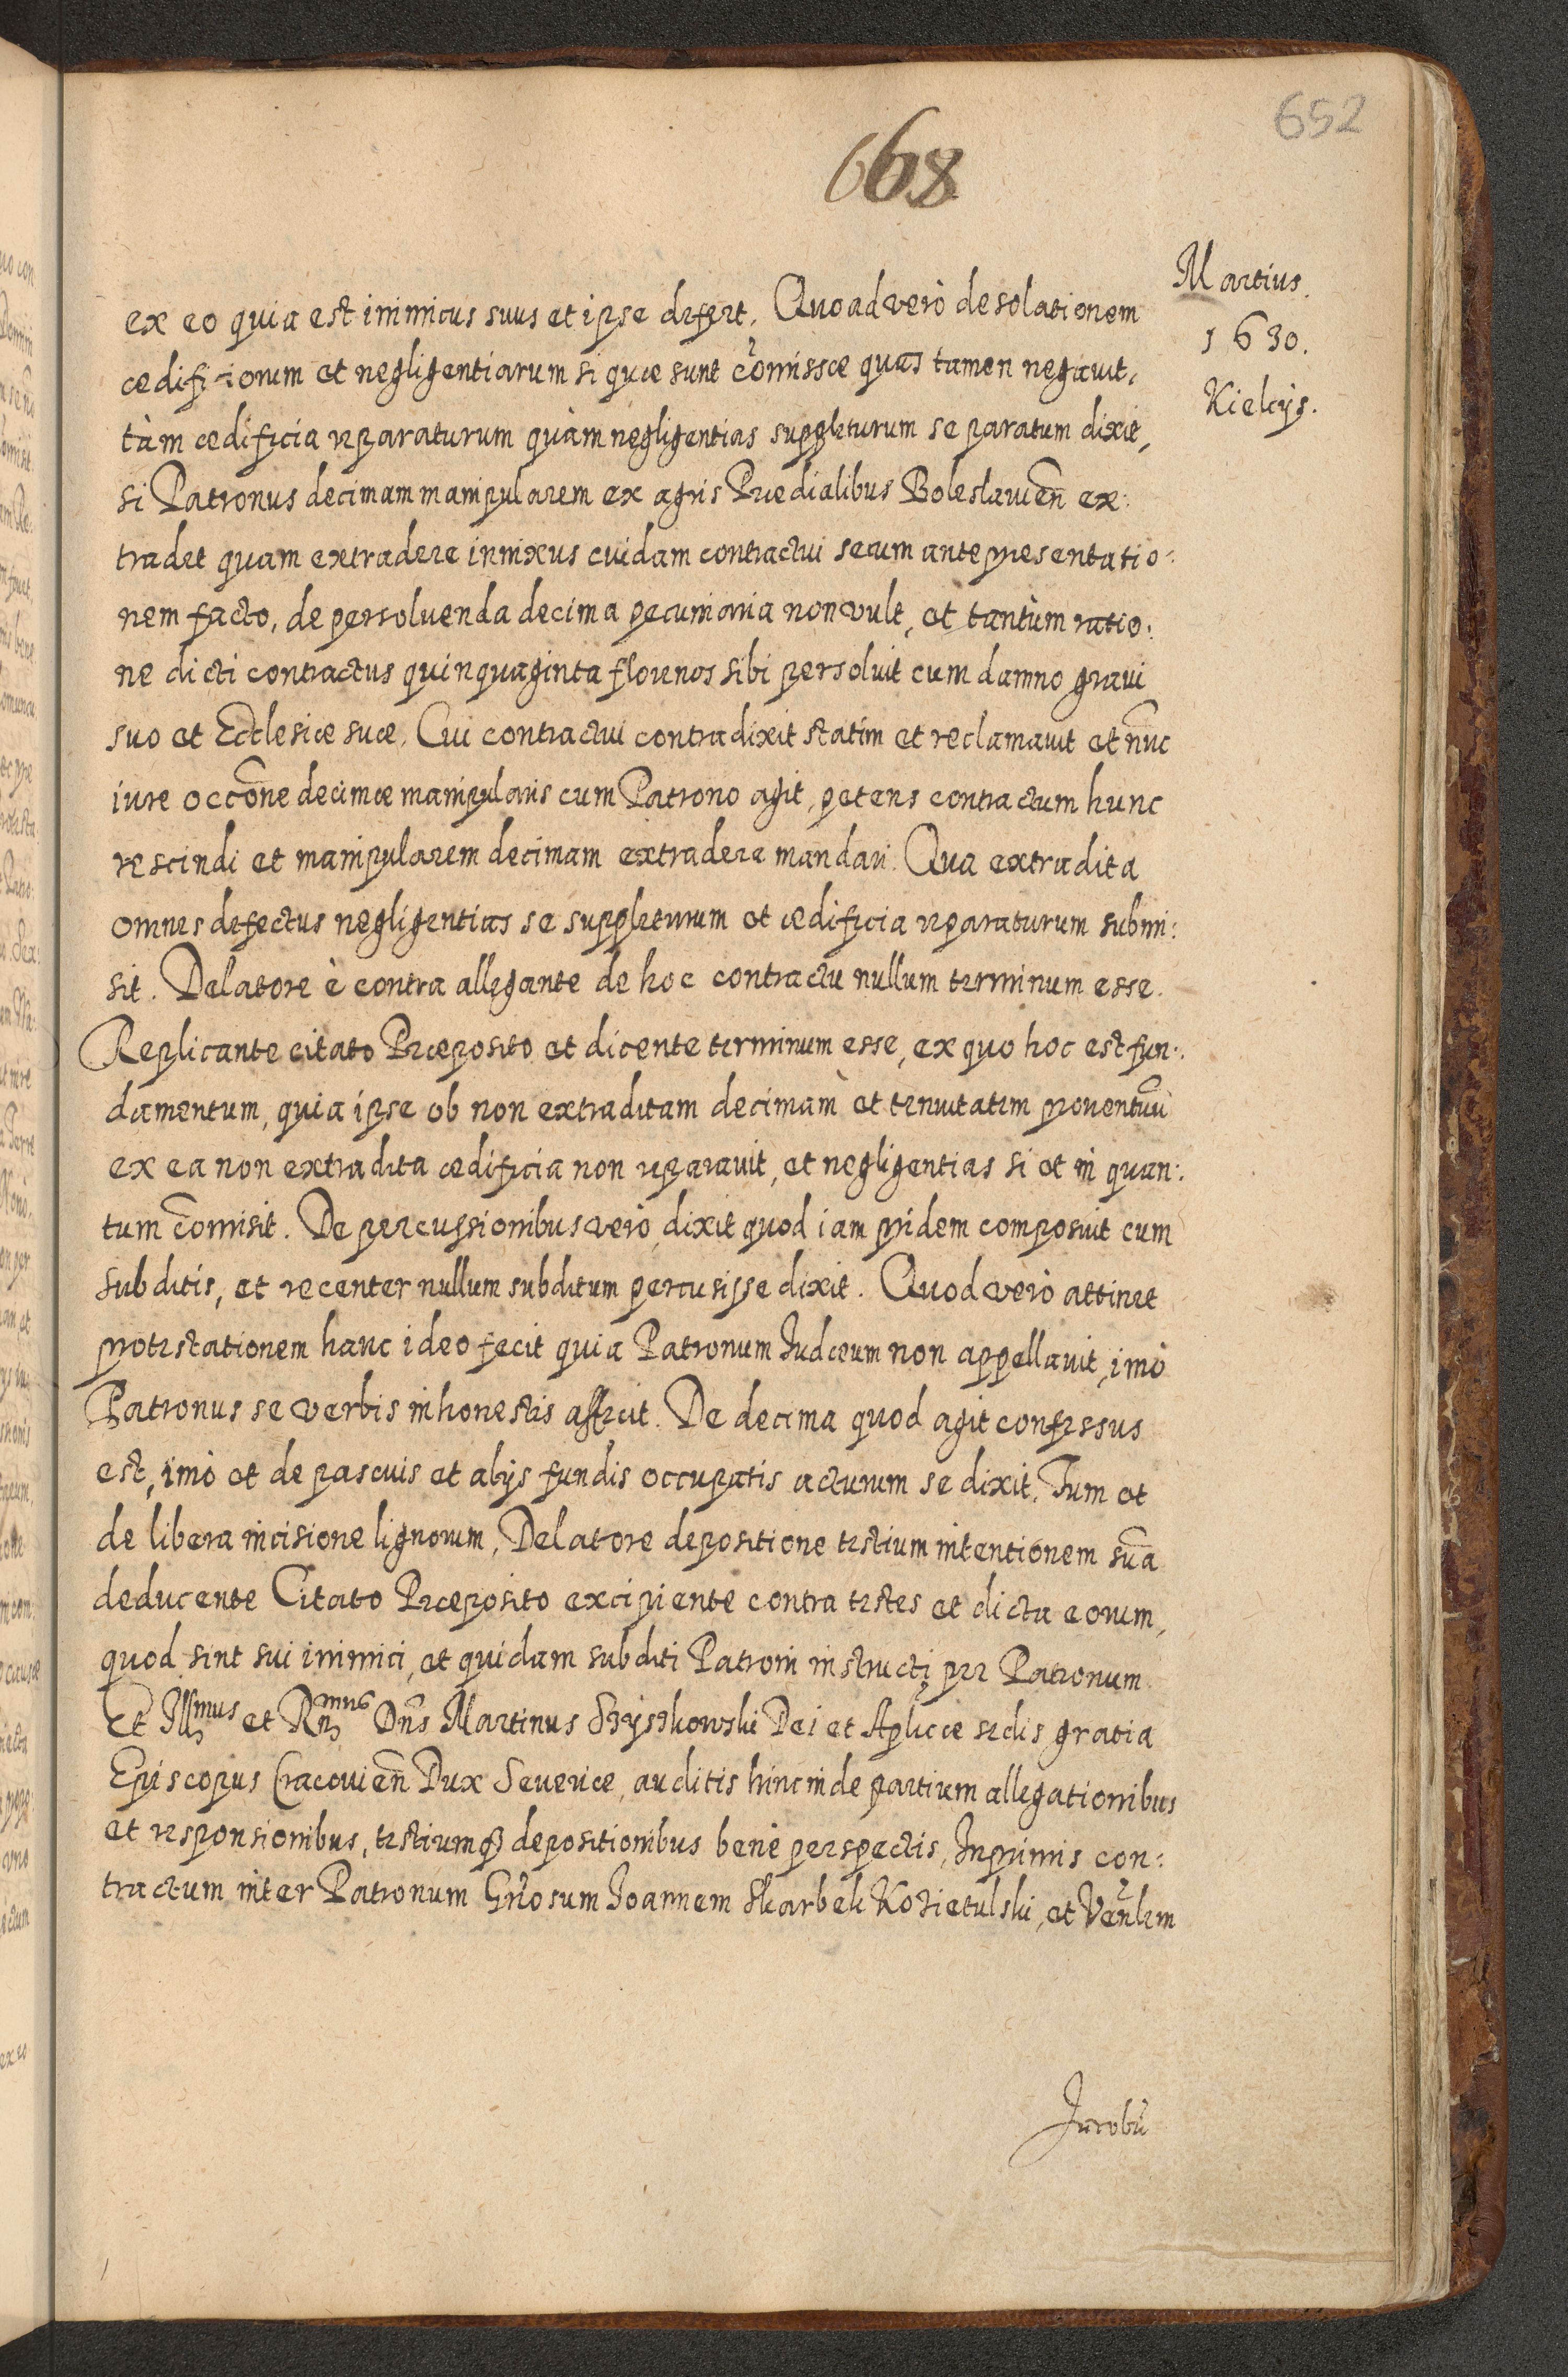 652
668
Martius.
1630.
Kielcijs.
ex eo quia est inimicus suus et ipse defert. Quoad verò desolationem
ædificiorum et negligentiarum si quæ sunt cõmissæ quas tamen negavit,
tàm ædificia reparaturum quàm negligentias suppleturum se paratum dixit,
si Patronus decimam manipularem ex agris Prædialibus Boleslauieñ ex:
tradet quam extradere innixus cuidam contractui secum ante presentatio:
nem facto, de persoluenda decima pecuniaria non vult, et tantùm ratio:
ne dicti contractus quinquaginta florenos sibi persoluit cum damno gravi
suo et Ecclesiæ suæ. Cui contractui contradixit statim et reclamavit et nũc
iure occõne decimæ manipularis cum Patrono agit, petens contractum hunc
rescindi et manipularem decimam extradere mandari. Qua extradita
omnes defectus negligentias se suppleturum et ædificia reparaturum submi:
sit. Delatore è contra allegante de hoc contractu nullum terminum esse.
Replicante citato Præposito et dicente terminum esse, ex quo hoc est fun:
damentum, quia ipse ob non extraditam decimam et tenuitatem proventuũ
ex ea non extradita ædificia non reparavit, et negligentias si et in quan:
tum cõmisit. De percussionibus verò dixit quod iam pridem composuit cum
subditis, et recenter nullum subditum percusisse dixit. Quod verò attinet
protestationem hanc ideo fecit quia Patronum Judæum non appellavit, imò
Patronus se verbis inhonestis affecit. De decima quod agit confessus
est, imò et de pascuis et alijs fundis occupatis acturum se dixit. Tum et
de libera incisione lignorum. Delatore depositione testium intentionem suã
deducente Citato Præposito excipiente contra testes et dicta eorum,
quod sint sui inimici, et quidam subditi Patroni instructi per Patronum
Et Illmus et Rndmus Dñs Martinus Szyszkowski Dei et Aplicæ sedis gratia
Episcopus Cracouieñ Dux Seueriæ, auditis hincinde partium allegationibus
et responsionibus, testiumq depositionibus benè perspectis, Inprimis con:
tractum inter Patronum Gñosum Joannem Skarbek Kozietulski, et Veñlem
Jacobũ